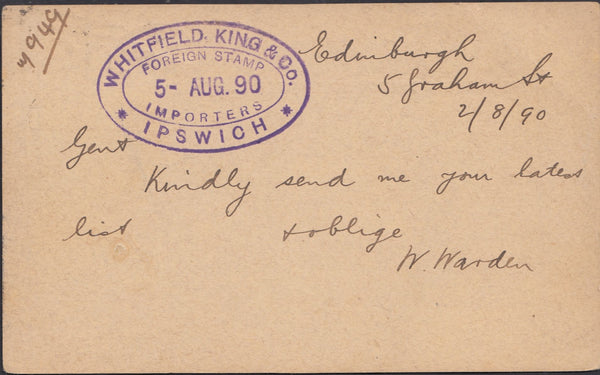 7949
WHITFIELD, KING & CO.
FOREIGN STAMP
5- AUG. 90
IMPORTERS
* IPSWICH *
Edinburgh
5 Graham St
2/8/90
Gent
Kindly send me your latest
list & oblige
W. Warden